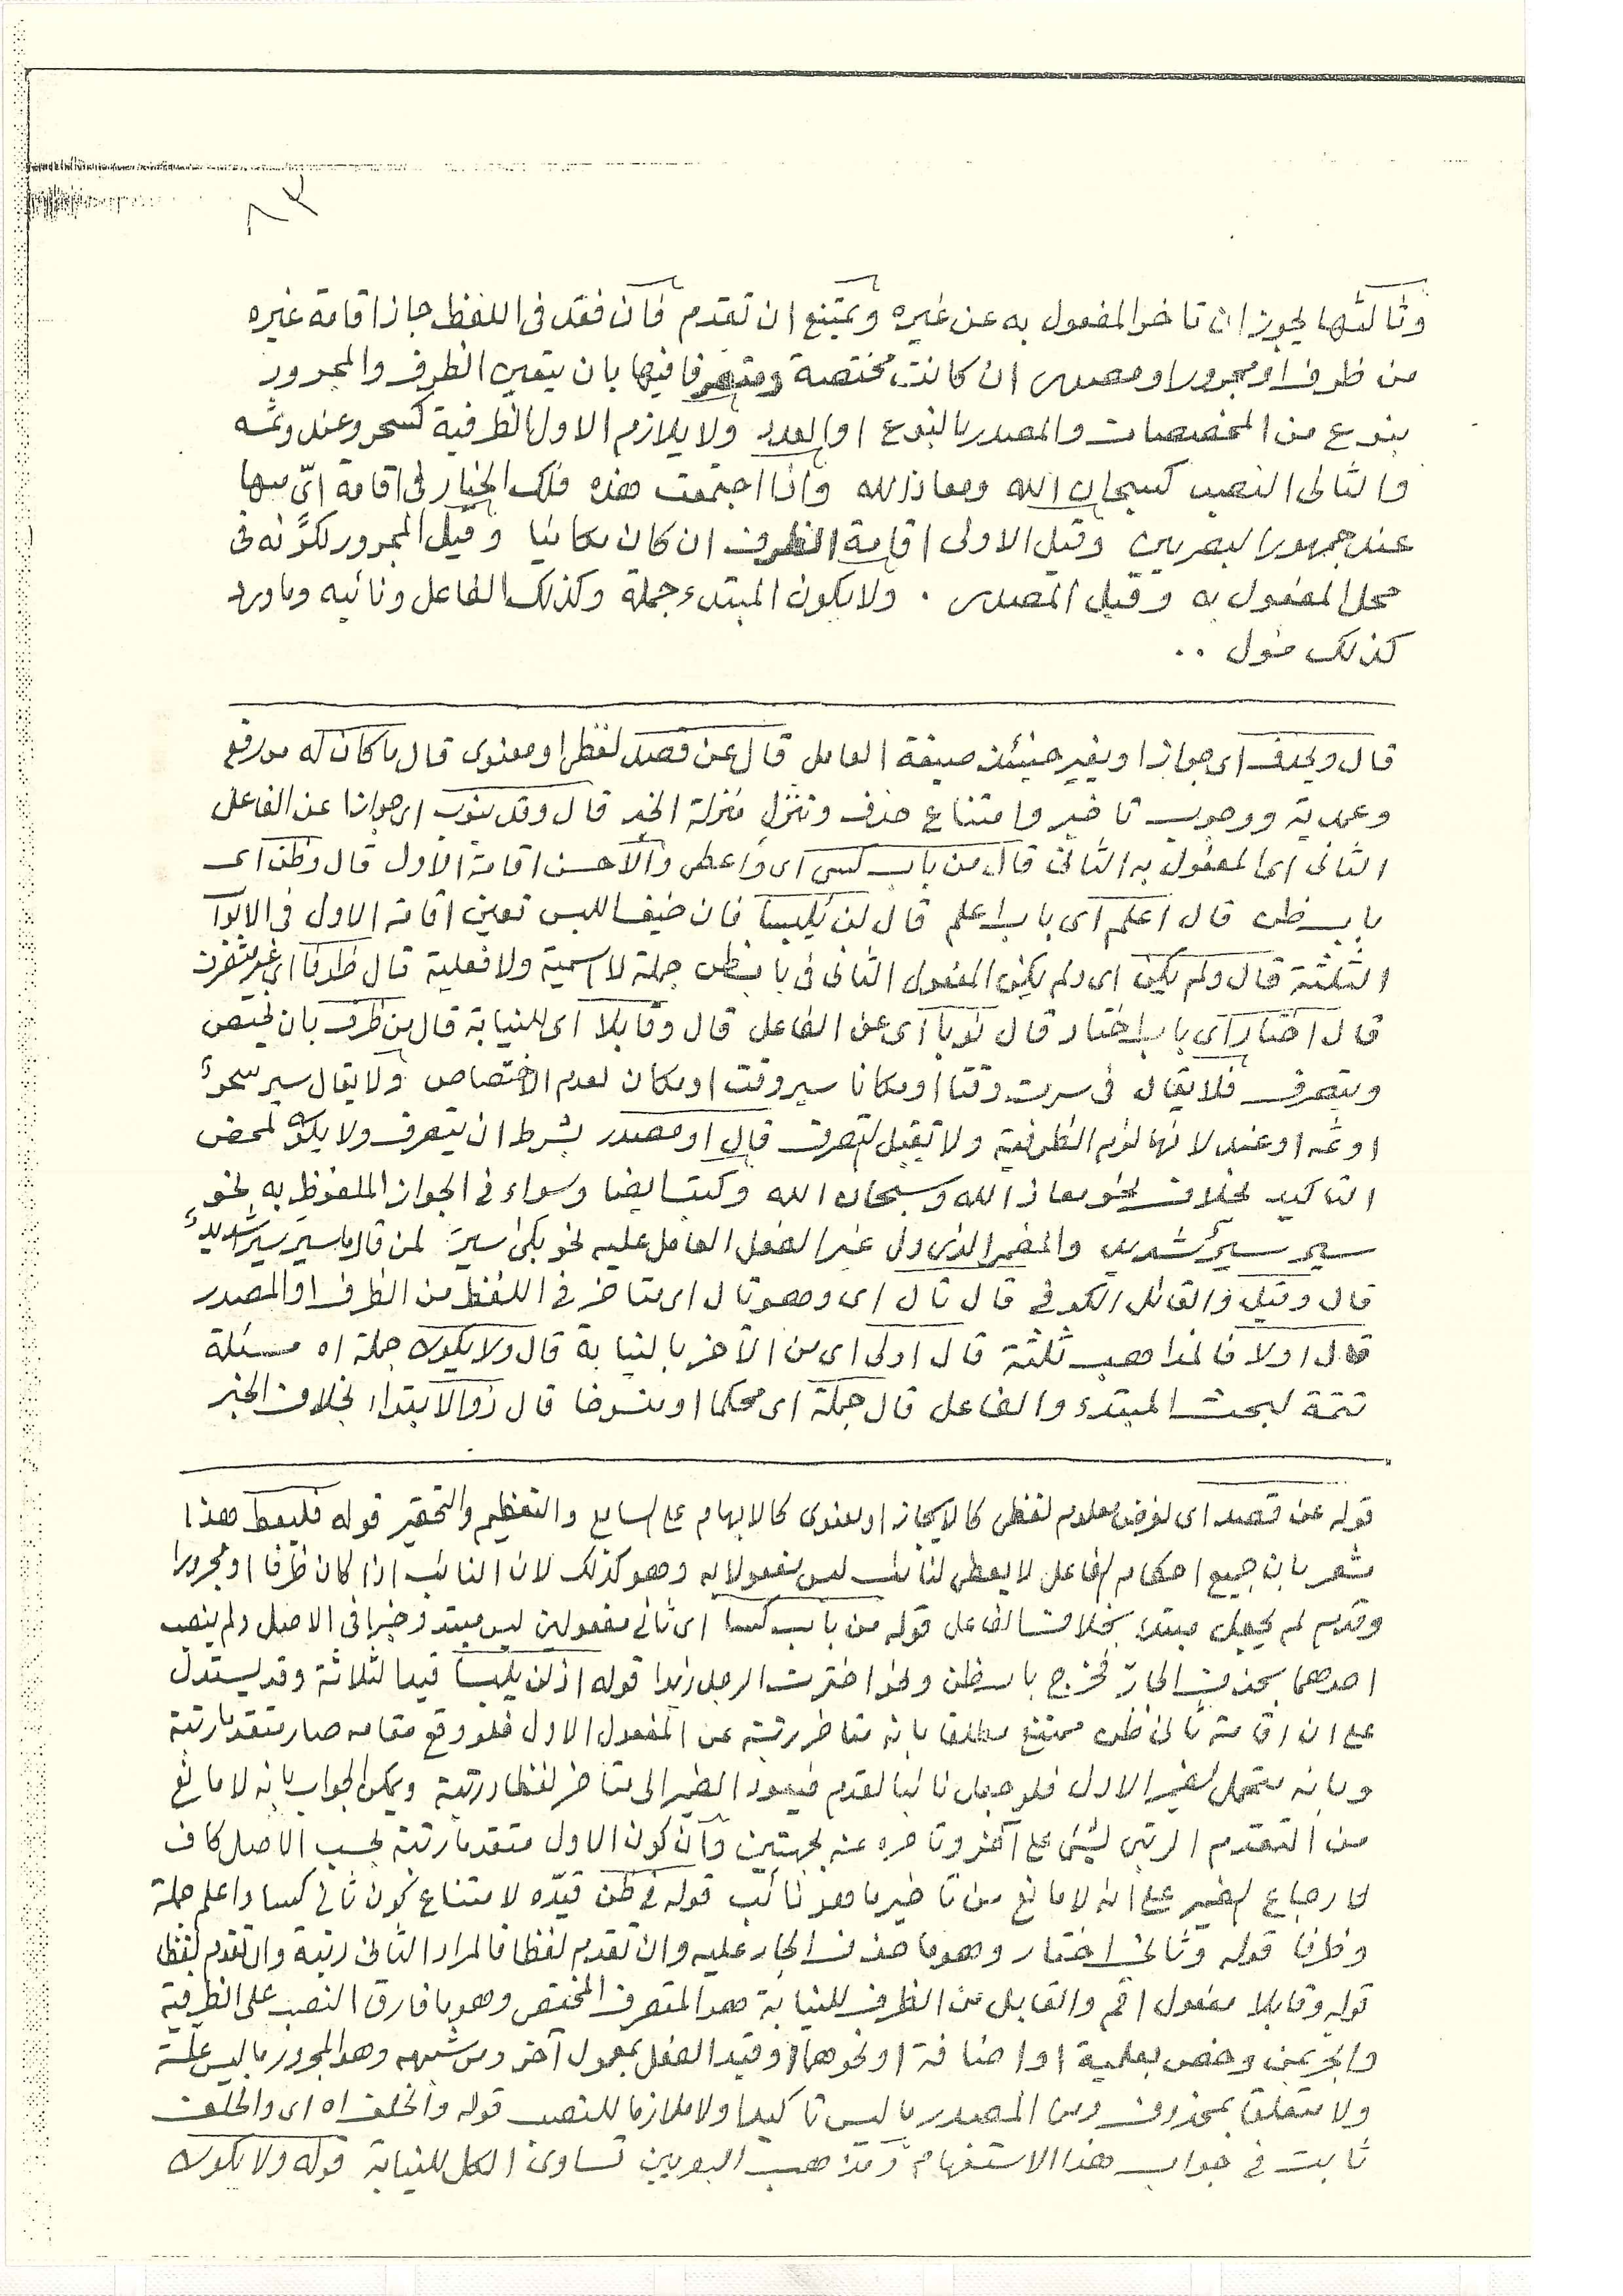 ٨٣
وثالثها يجوز ان تاخر المفعول به عن غيره ويمتنع ان تقدم فان فقد فى اللفظ جاز اقامة غيره
من ظرف او مجرور او مصدر ان كانت مختصة ومتصرفا فيها بان يتعين الظرف والمجرور
بنوع من المخصصات والمصدر بالنوع او العدد ولا يلازم الاول الظرفية كسحر وعند وثمه
والثانى النصب كسبحان الله ومعاذ الله واذا اجتمعت هذه فلك الخيار فى اقامة اىّ منها
عند جمهور البصريين وقيل الاولى اقامة الظرف ان كان مكانيا وقيل المجرور لكونه فى
محل المفعول به وقيل المصدر . ولا يكون المبتدء جملة وكذلك الفاعل ونائبه وما ورد
كذلك مئول ..
قال ويحذف اى جوازا ويغير حينئذ صيغة العامل قال عن قصد لفظى او معنوى قال ما كان له من رفع
وعمدية ووجوب تاخير وامتناع حذف وتنزل منزلة الجزء قال وقد ينوب اى جوازا عن الفاعل
الثانى اى المفعول به الثانى قال من باب كسى اى واعطى والاحسن اقامة الاول قال وظن اى
باب ظن قال اعلم اى باب اعلم قال لن يلبسا فان خيف اللبس تعين اقامة الاول فى الابواب
الثلثة قال ولم يكن اى ولم يكن المفعول الثانى فى باب ظن جملة لا اسمية ولا فعلية قال ظرفا اى غير متصرف
قال اختار اى باب اختار قال نوبا اى عن الفاعل قال وقابلا اى للنيابة قال من ظرف بان يختص
ويتصرف فلا يقال فى سرت وقتا او مكانا سير وقت او مكان لعدم الاختصاص ولا يقال سير سحر
او ثمه او عند لانها لزم الظرفية ولا تقبل التصرف قال او مصدر بشرط ان يتصرف ولا يكون لمحض
التاكيد بخلاف نحو معاذ الله وسبحان الله وكتب ايضا وسواء فى الجواز الملفوظ به نحو
سير سير شديد والمضمر الذى دل غير الفعل العامل عليه نحو بلى سير لمن قال ما سير سير شديد
قال وقيل والقائل الكوفى قال تال اى وهو تال اى متاخر فى اللفظ من الظرف او المصدر
قال اولا فالمذاهب ثلثة قال اولى اى من الآخر بالنيابة قال ولا يكون جملة اه مسئلة
تتمة لبحث المبتدء والفاعل قال جملة اى محكما او منسوخا قال ذو الابتدا بخلاف الخبر
قوله عن قصد اى لغرض معلوم لفظى كالايجاز او معنوى كالابهام على السامع والتعظيم والتحقير قوله فليعط هذا
مشعر بان جميع احكام الفاعل لا يعطى لنائب ليس مفعولا به وهو كذلك لان النائب اذا كان ظرفا او مجرورا
وقدم لم يجعل مبتدا بخلاف الفاعل قوله من باب كسا اى ثانى مفعولين ليس مبتدء وخبرا فى الاصل ولم ينصب
احدهما بحذف الجارّ فخرج باب ظن ونحو اخترت الرجل زيدا قوله اذ لن يلبسا قيد الثلاثة وقد يستدل
على ان اقامة ثانى ظن ممتنع مطلقا بانه متاخر رتبة عن المفعول الاول فلو وقع مقامه صار متقدما رتبة
وبانه متحمل لضمير الاول فلو جعل نائبا لقدم فيعود الضمير الى متاخر لفظا ورتبة ويمكن الجواب بانه لا مانع
من التقدم الرتبى لشئ على آخر وتاخره عنه بجهتين وان كون الاول متقدما رتبة بحسب الاصل كاف
لارجاع الضمير على انه لا مانع من تاخير ما هو نائب قوله فى ظن قيّده لامتناع كون ثانى كسا واعلم جملة
وظرفا قوله وثانى اختار وهو ما حذف الجار عليه وان تقدم لفظا فالمراد الثانى رتبة وان تقدم لفظا
قوله وقابلا مفعول اقم والقابل من الظرف للنيابة هو المتصرف المختص وهو ما فارق النصب على الظرفية
والجر بمن وخص بعلمية او اضافة او نحوهما او قيد الفعل بمعمول آخر ومن شبهه وهو المجرور ما ليس علّة
ولا متعلق بمحذوف ومن المصدر ما ليس تاكيدا ولا ملازما للنصب قوله والخلف اه اى والخلف
ثابت فى جواب هذا الاستفهام ومذهب البصريين تساوى الكل للنيابة قوله ولا يكون